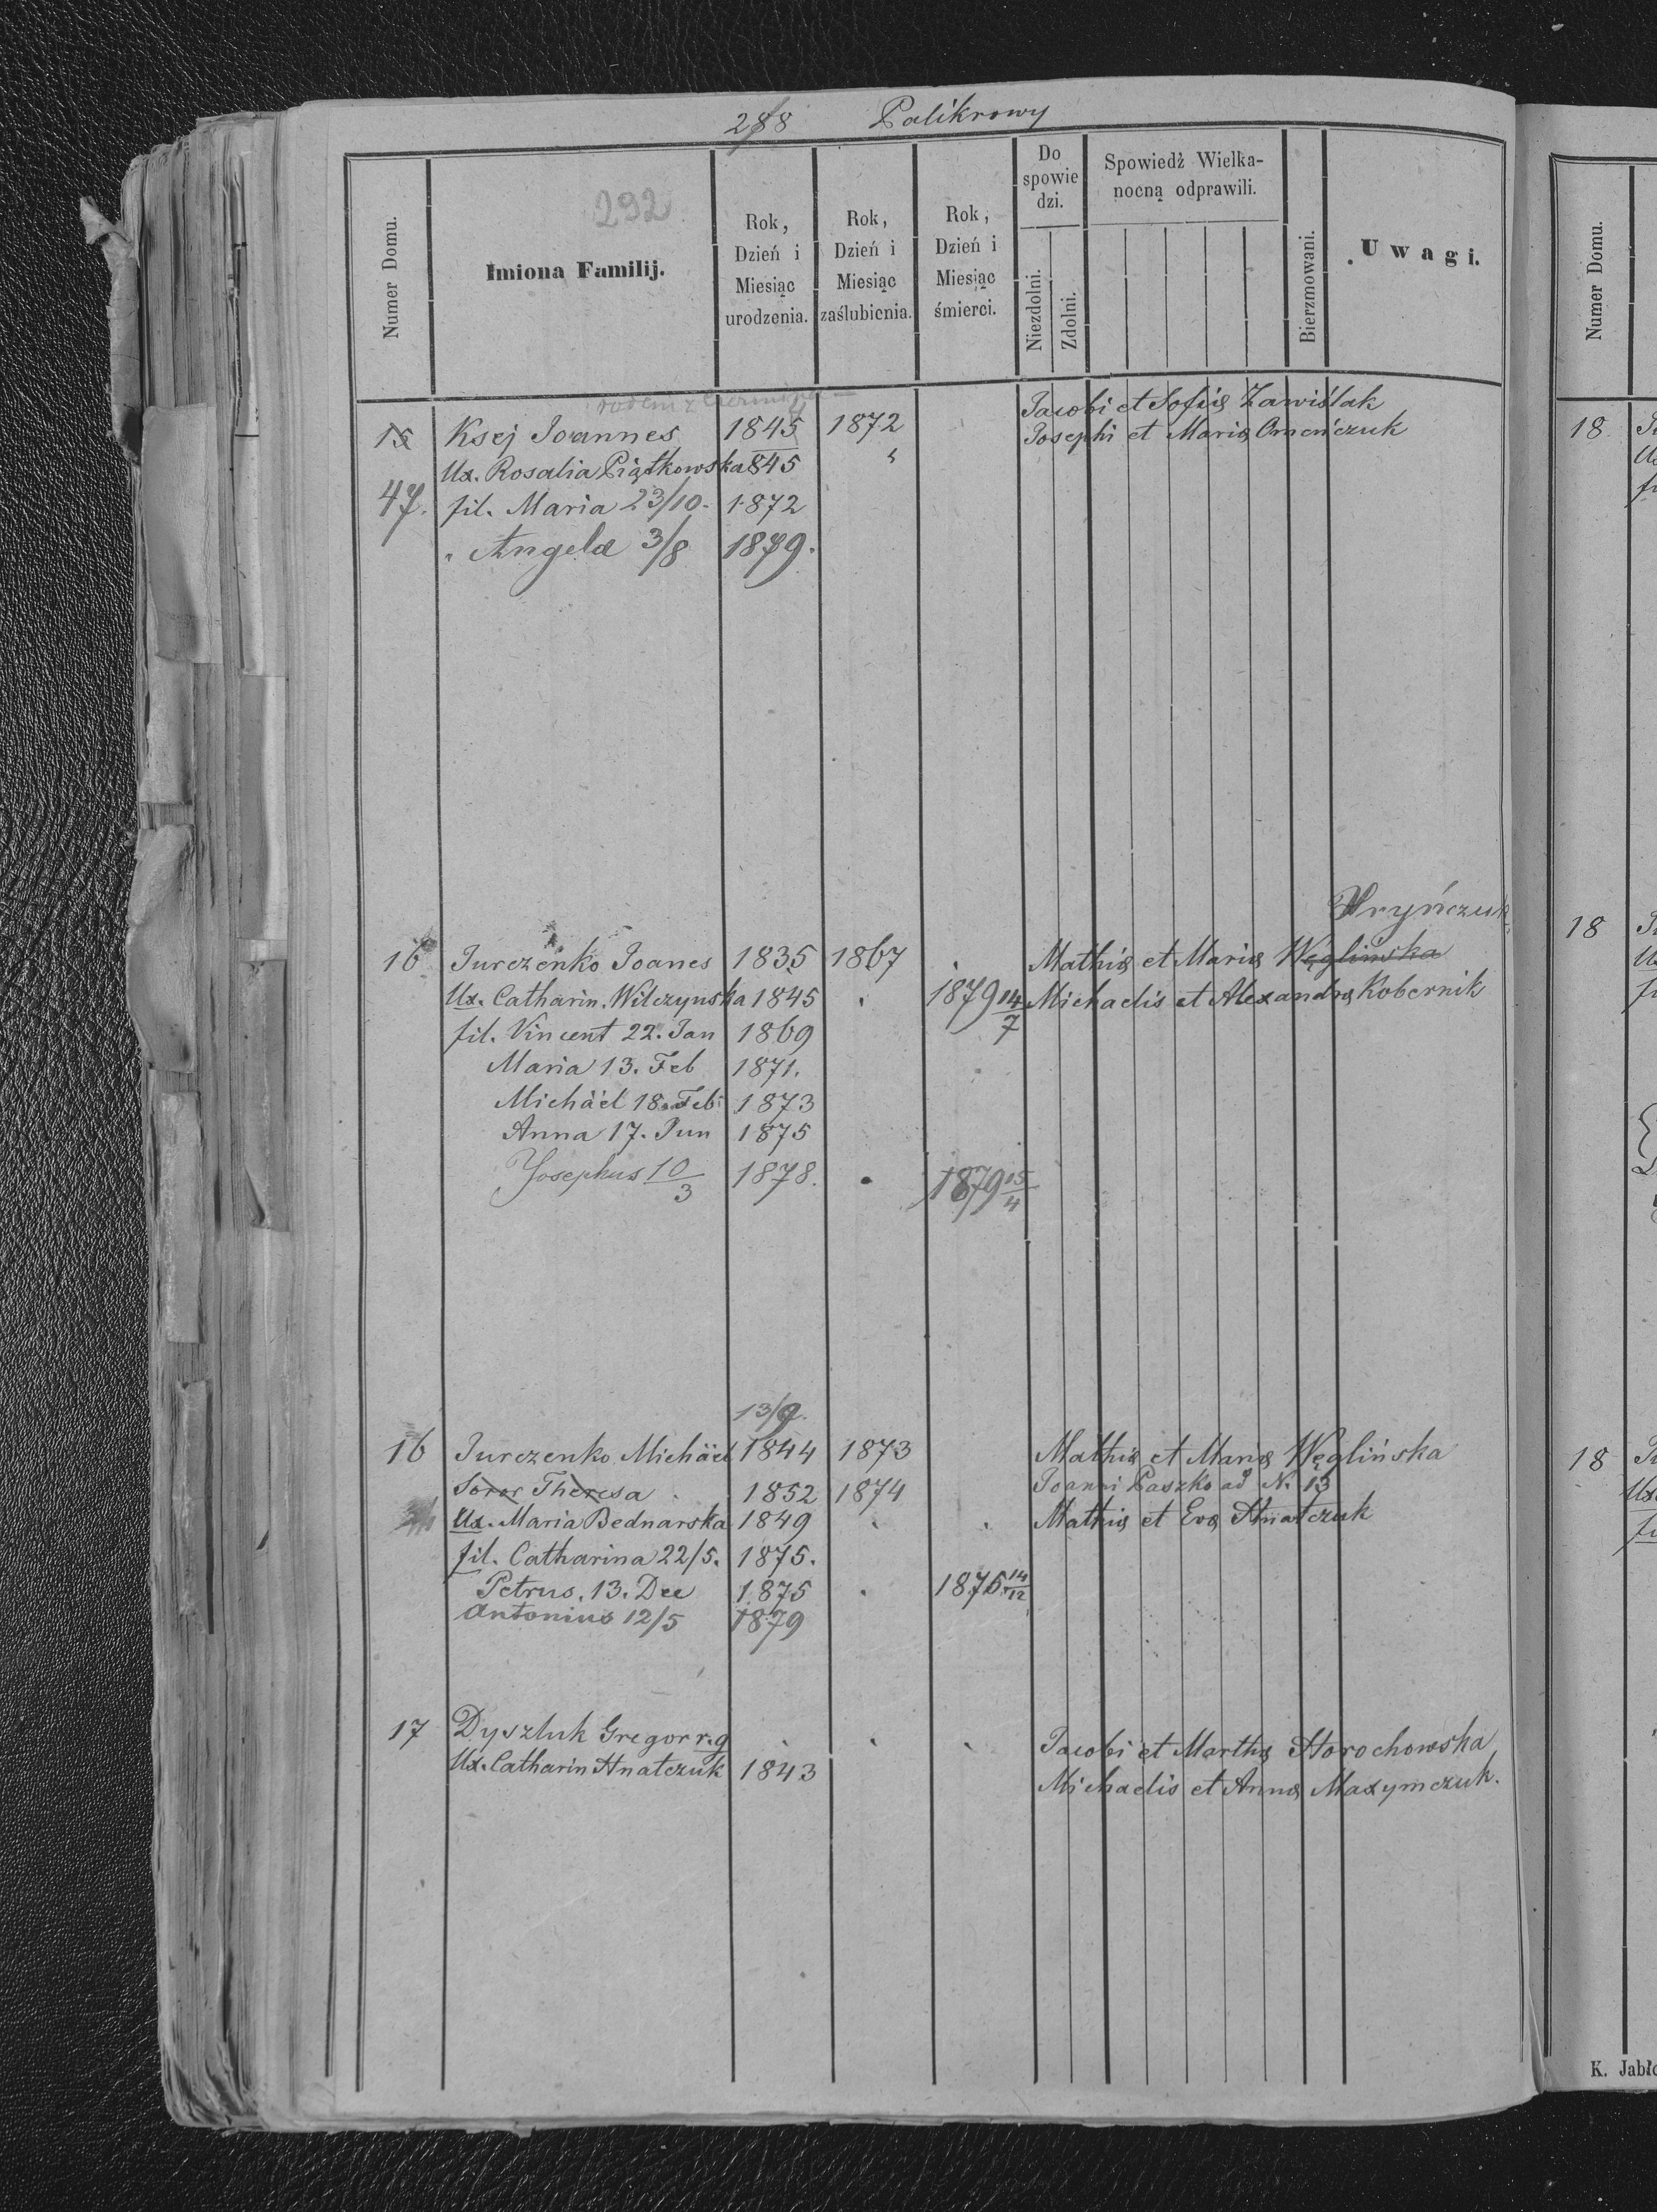 288 Palikrowy
292
Numer Domu.
Imiona Familij.
Rok, Dzień i Miesiąc urodzenia.
Rok, Dzień i Miesiąc zaślubienia.
Rok, Dzień i Miesiąc śmierci.
Do spowie dzi.
Niezdolni.
Zdolni.
Spowiedż Wielka-
nocną odprawili.
Bierzmowani.
Uwagi.
rodem z
15 Ksej Joannes 1845 1872 Jacobi et Sofiæ Zawiślak
Ux. Rosalia Piątkowska 845 " Josephi et Mariæ Omeńczuk
47. fil. Maria 23/10. 1872
" Angela 3/8 1879.
Hryńczuk
16 Jurczenko Joanes 1835 1867 Mathiæ et Mariæ Węglińska
Ux. Catharin. Wilczynska 1845 1879 14/7 Michaelis et Alexandræ Kobernik
fil. Vincent 22. Jan 1869
Maria 13. Feb 1871.
Michäel 18. Feb 1873
Anna 17. Jun 1875
Josephus 10/3 1878. 1879 15/4
13/9.
16 Jurczenko Michäel 1844 1873 Mathiæ et Mariæ Węglińska
Soror Theresa 1852 1874 Joanni Paszko ad N. 13
Ux. Maria Bednarska 1849 Mathiæ et Evæ Hnatczuk
fil. Catharina 22/5. 1875.
Petrus. 13. Dec 1875 1875 14/12
Antonius 12/5 1879
17 Dyszluk Gregor r.g Jacobi et Marthæ Horochowska
Ux. Catharin Hnatczuk 1843 Michaelis et Annæ Maxymczuk.
Numer Domu.
18
18
18
K. Jabło